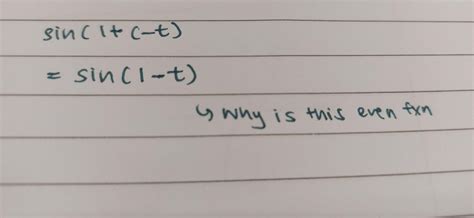 sin(1+(-t)
= sin(1-t)
↳ why is this even fxn